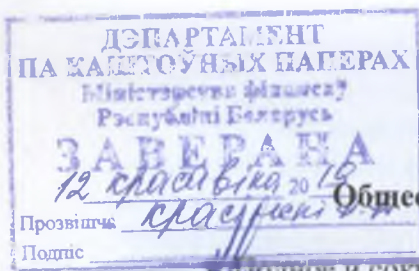 ДЭПАРТАМЕНТ
ПА КАШТОЎНЫХ ПАПЕРАХ
Міністэрства фінансаў
Рэспублікі Беларусь
ЗАВЕРАНА
12 красавіка 20
Общес
Прозвішча
Подпіс